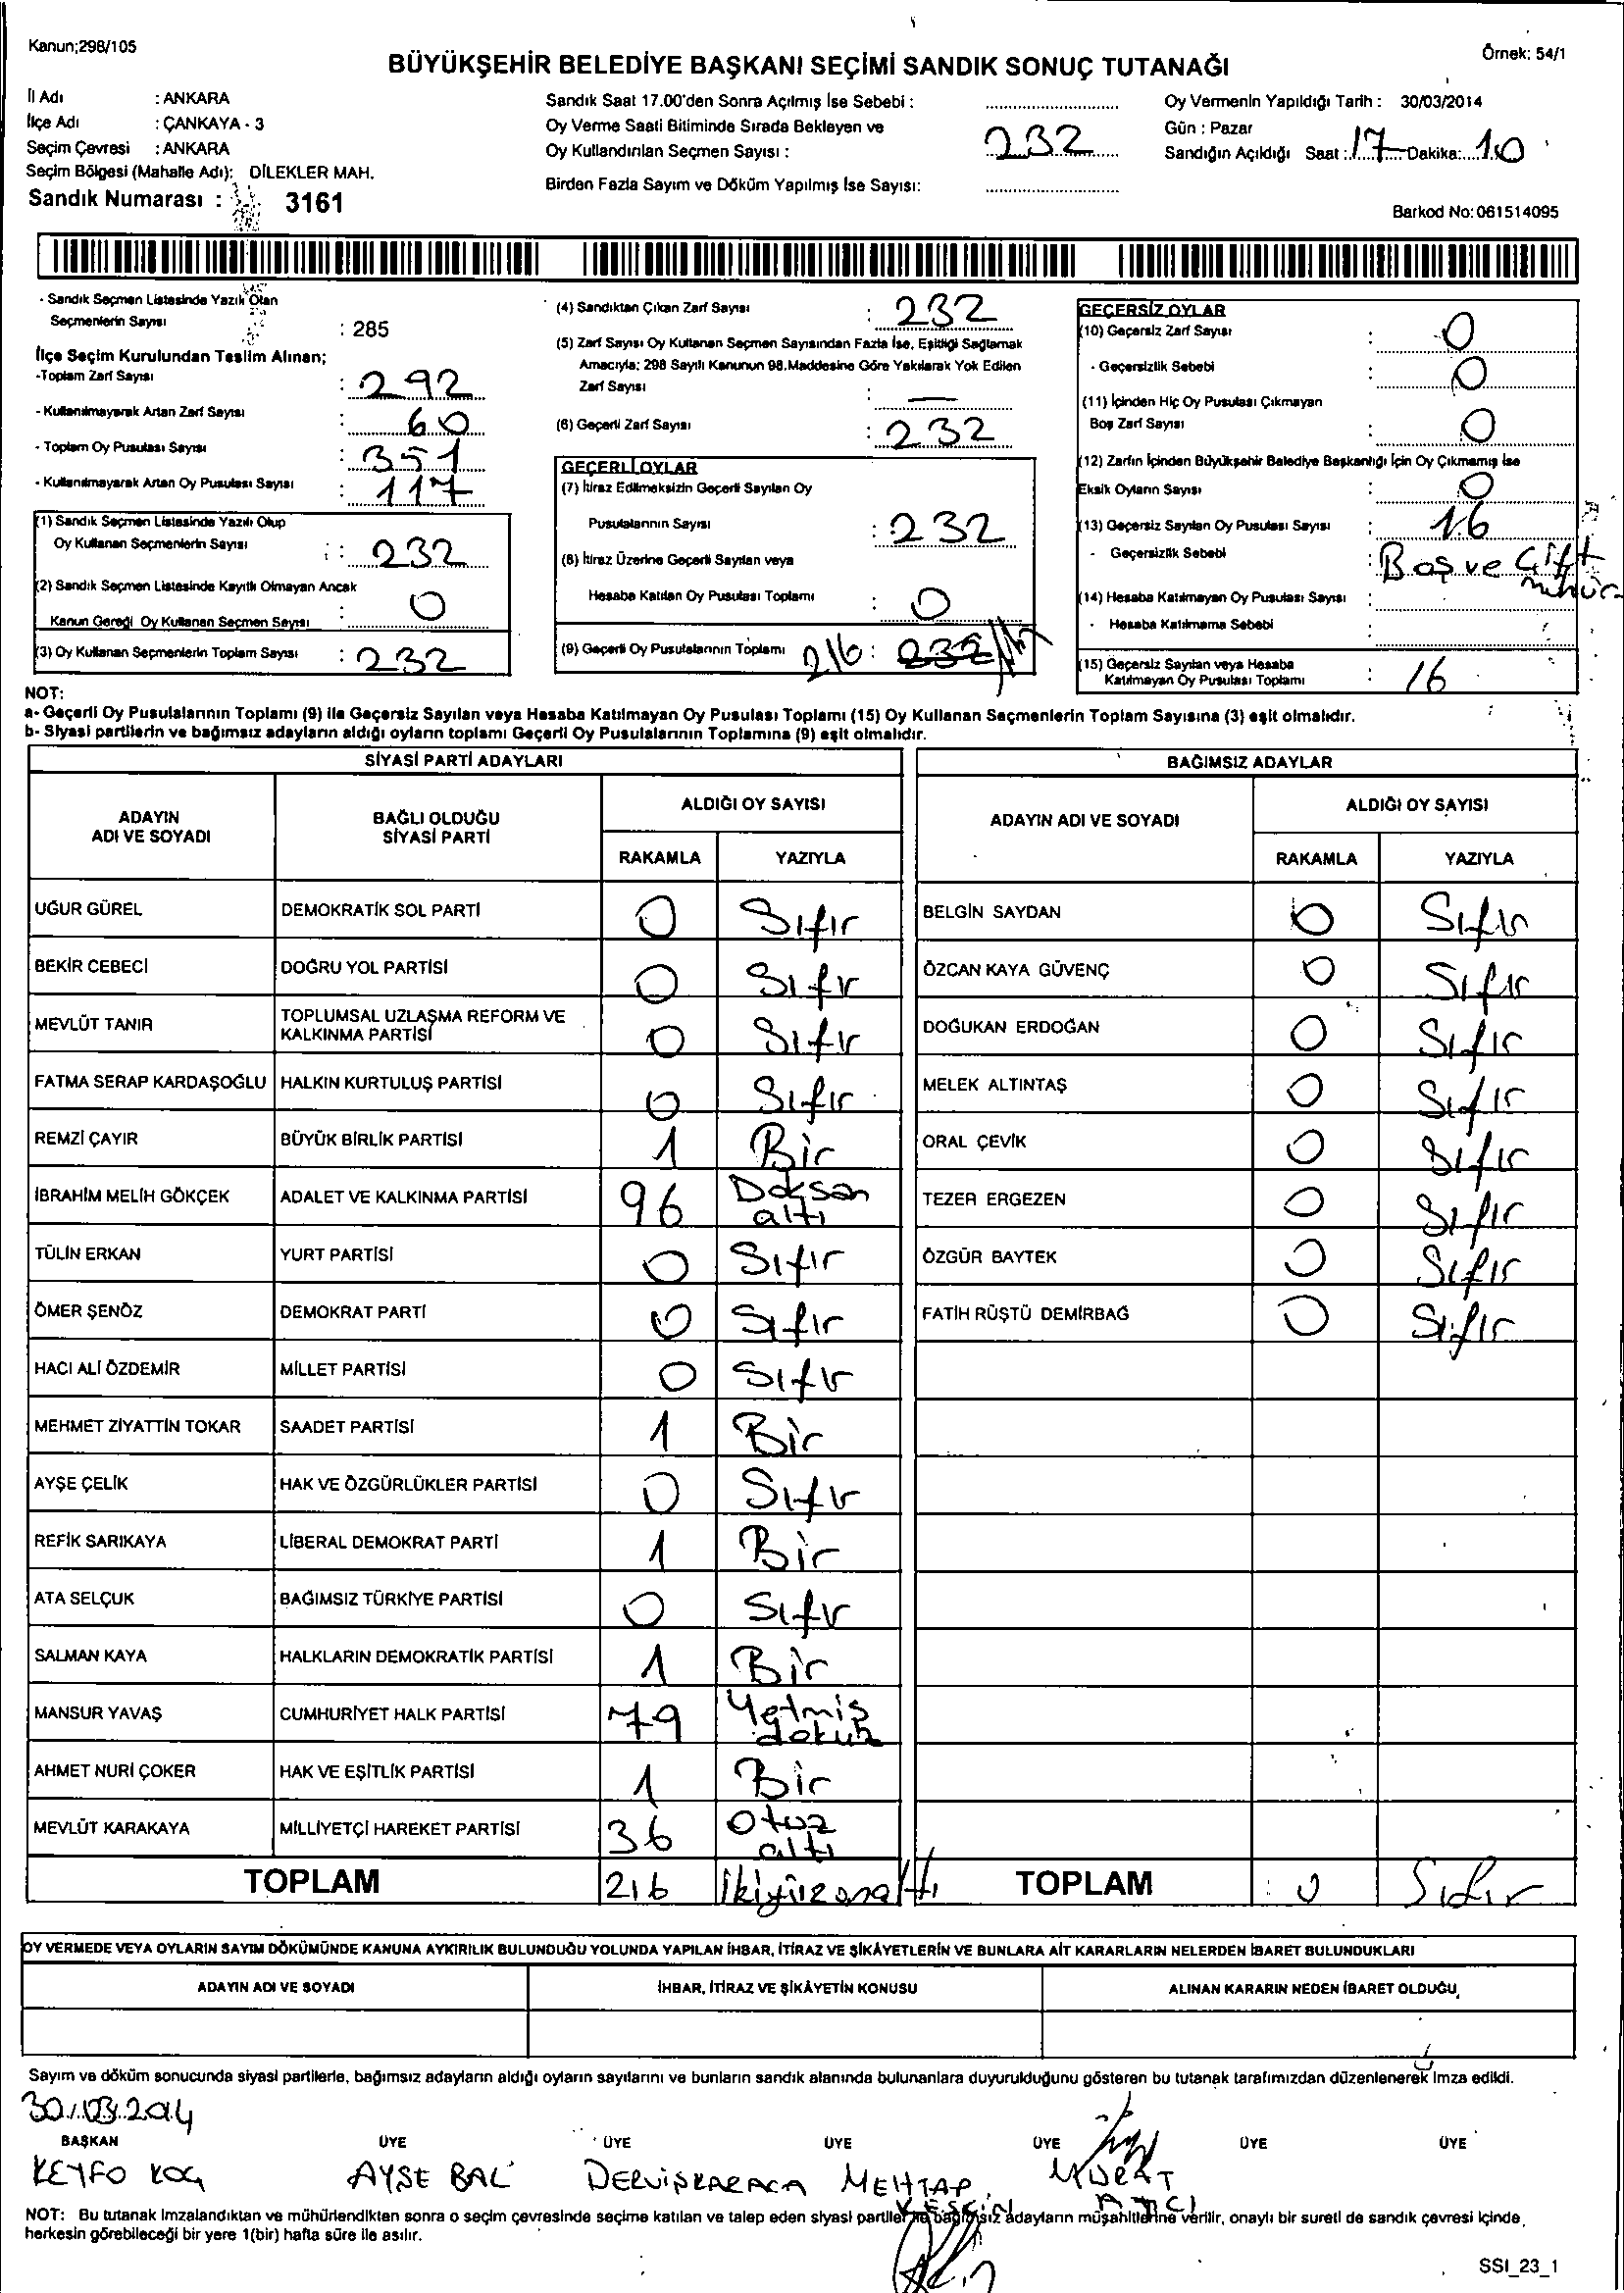 Kanun;298/105
Örnek: 54/1
BÜYÜKŞEHİR BELEDİYE BAŞKANI SEÇİMİ SANDIK SONUÇ TUTANAĞI
İl Adı : ANKARA
İlçe Adı : ÇANKAYA - 3
Seçim Çevresi : ANKARA
Seçim Bölgesi (Mahalle Adı): DİLEKLER MAH.
Sandık Numarası : 3161
Sandık Saat 17.00'den Sonra Açılmış İse Sebebi :
Oy Verme Saati Bitiminde Sırada Bekleyen ve
Oy Kullandırılan Seçmen Sayısı : 232
Birden Fazla Sayım ve Döküm Yapılmış İse Sayısı:
Oy Vermenin Yapıldığı Tarih : 30/03/2014
Gün : Pazar
Sandığın Açıldığı Saat : 17 Dakika: 10
Barkod No: 061514095
- Sandık Seçmen Listesinde Yazılı Olan
Seçmenlerin Sayısı : 285
İlçe Seçim Kurulundan Teslim Alınan;
-Toplam Zarf Sayısı : 292
- Kullanılmayarak Artan Zarf Sayısı : 60
- Toplam Oy Pusulası Sayısı : 351
- Kullanılmayarak Artan Oy Pusulası Sayısı : 117
(1) Sandık Seçmen Listesinde Yazılı Olup
Oy Kullanan Seçmenlerin Sayısı : 232
(2) Sandık Seçmen Listesinde Kayıtlı Olmayan Ancak
Kanun Gereği Oy Kullanan Seçmen Sayısı : 0
(3) Oy Kullanan Seçmenlerin Toplam Sayısı : 232
(4) Sandıktan Çıkan Zarf Sayısı : 232
(5) Zarf Sayısı Oy Kullanan Seçmen Sayısından Fazla İse, Eşitliği Sağlamak
Amacıyla; 298 Sayılı Kanunun 98.Maddesine Göre Yakılarak Yok Edilen
Zarf Sayısı : —
(6) Geçerli Zarf Sayısı : 232
GEÇERLİ OYLAR
(7) İtiraz Edilmeksizin Geçerli Sayılan Oy
Pusulalarının Sayısı : 232
(8) İtiraz Üzerine Geçerli Sayılan veya
Hesaba Katılan Oy Pusulası Toplamı : 0
(9) Geçerli Oy Pusulalarının Toplamı 216 : 232
GEÇERSİZ OYLAR
(10) Geçersiz Zarf Sayısı : 0
- Geçersizlik Sebebi : 0
(11) İçinden Hiç Oy Pusulası Çıkmayan
Boş Zarf Sayısı : 0
(12) Zarfın İçinden Büyükşehir Belediye Başkanlığı İçin Oy Çıkmamış İse
Eksik Oyların Sayısı : 0
(13) Geçersiz Sayılan Oy Pusulası Sayısı : 16
- Geçersizlik Sebebi : Boş ve Çift mühür
(14) Hesaba Katılmayan Oy Pusulası Sayısı :
- Hesaba Katılmama Sebebi :
(15) Geçersiz Sayılan veya Hesaba
Katılmayan Oy Pusulası Toplamı : 16
NOT:
a- Geçerli Oy Pusulalarının Toplamı (9) ile Geçersiz Sayılan veya Hesaba Katılmayan Oy Pusulası Toplamı (15) Oy Kullanan Seçmenlerin Toplam Sayısına (3) eşit olmalıdır.
b- Siyasi partilerin ve bağımsız adayların aldığı oyların toplamı Geçerli Oy Pusulalarının Toplamına (9) eşit olmalıdır.
SİYASİ PARTİ ADAYLARI
ADAYIN ADI VE SOYADI BAĞLI OLDUĞU SİYASİ PARTİ ALDIĞI OY SAYISI
RAKAMLA YAZIYLA
UĞUR GÜREL DEMOKRATİK SOL PARTİ 0 Sıfır
BEKİR CEBECİ DOĞRU YOL PARTİSİ 0 Sıfır
MEVLÜT TANIR TOPLUMSAL UZLAŞMA REFORM VE KALKINMA PARTİSİ 0 Sıfır
FATMA SERAP KARDAŞOĞLU HALKIN KURTULUŞ PARTİSİ 0 Sıfır
REMZİ ÇAYIR BÜYÜK BİRLİK PARTİSİ 1 Bir
İBRAHİM MELİH GÖKÇEK ADALET VE KALKINMA PARTİSİ 96 Doksan altı
TÜLİN ERKAN YURT PARTİSİ 0 Sıfır
ÖMER ŞENÖZ DEMOKRAT PARTİ 0 Sıfır
HACI ALİ ÖZDEMİR MİLLET PARTİSİ 0 Sıfır
MEHMET ZİYATTİN TOKAR SAADET PARTİSİ 1 Bir
AYŞE ÇELİK HAK VE ÖZGÜRLÜKLER PARTİSİ 0 Sıfır
REFİK SARIKAYA LİBERAL DEMOKRAT PARTİ 1 Bir
ATA SELÇUK BAĞIMSIZ TÜRKİYE PARTİSİ 0 Sıfır
SALMAN KAYA HALKLARIN DEMOKRATİK PARTİSİ 1 Bir
MANSUR YAVAŞ CUMHURİYET HALK PARTİSİ 79 Yetmiş dokuz
AHMET NURİ ÇOKER HAK VE EŞİTLİK PARTİSİ 1 Bir
MEVLÜT KARAKAYA MİLLİYETÇİ HAREKET PARTİSİ 36 Otuz altı
TOPLAM 216 İkiyüzonaltı
BAĞIMSIZ ADAYLAR
ADAYIN ADI VE SOYADI ALDIĞI OY SAYISI
RAKAMLA YAZIYLA
BELGİN SAYDAN 0 Sıfır
ÖZCAN KAYA GÜVENÇ 0 Sıfır
DOĞUKAN ERDOĞAN 0 Sıfır
MELEK ALTINTAŞ 0 Sıfır
ORAL ÇEVİK 0 Sıfır
TEZER ERGEZEN 0 Sıfır
ÖZGÜR BAYTEK 0 Sıfır
FATİH RÜŞTÜ DEMİRBAĞ 0 Sıfır
TOPLAM : 0 Sıfır
OY VERMEDE VEYA OYLARIN SAYIM DÖKÜMÜNDE KANUNA AYKIRILIK BULUNDUĞU YOLUNDA YAPILAN İHBAR, İTİRAZ VE ŞİKÂYETLERİN VE BUNLARA AİT KARARLARIN NELERDEN İBARET BULUNDUKLARI
ADAYIN ADI VE SOYADI İHBAR, İTİRAZ VE ŞİKÂYETİN KONUSU ALINAN KARARIN NEDEN İBARET OLDUĞU
Sayım ve döküm sonucunda siyasi partilerle, bağımsız adayların aldığı oyların sayılarını ve bunların sandık alanında bulunanlara duyurulduğunu gösteren bu tutanak tarafımızdan düzenlenerek imza edildi.
30/03/2014
BAŞKAN ÜYE ÜYE ÜYE ÜYE ÜYE ÜYE
KEYFO KOÇ AYŞE BAL DERVİŞ KARACA MEHTAP KESKİN MURAT
NOT: Bu tutanak imzalandıktan ve mühürlendikten sonra o seçim çevresinde seçime katılan ve talep eden siyasi partiler ve bağımsız adayların müşahitlerine verilir, onaylı bir sureti de sandık çevresi içinde,
herkesin görebileceği bir yere 1(bir) hafta süre ile asılır.
SSI_23_1